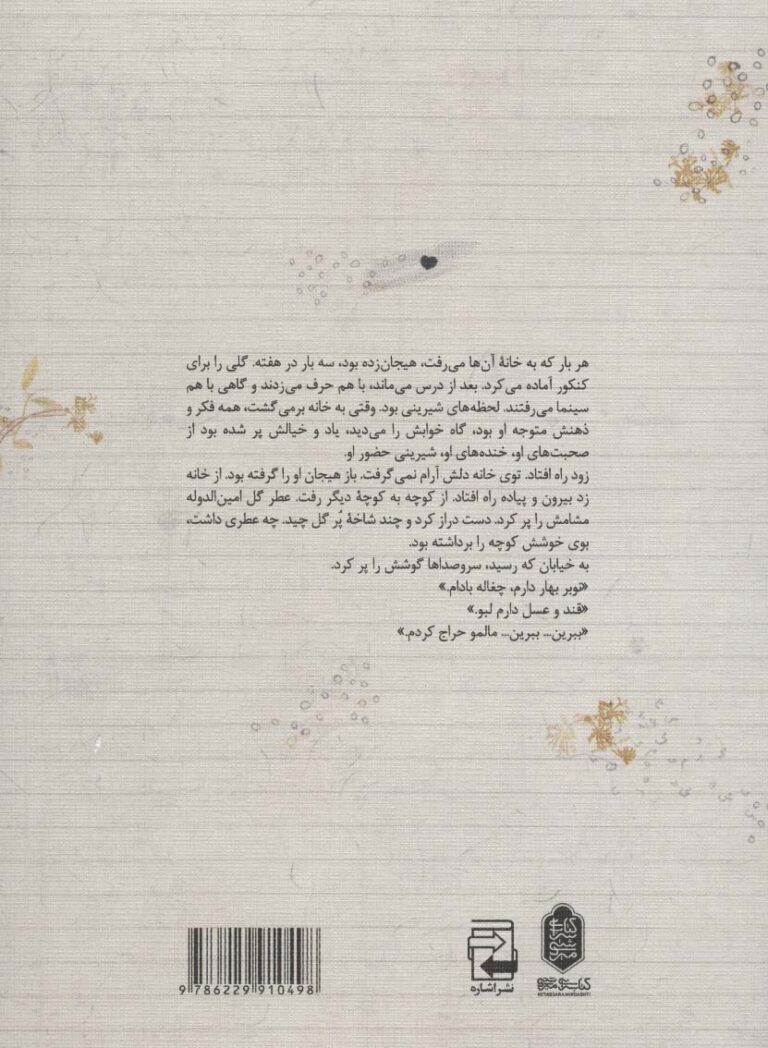 هر بار که به خانهٔ آن‌ها می‌رفت، هیجان‌زده بود، سه بار در هفته. گلی را برای
کنکور آماده می‌کرد. بعد از درس می‌ماند، با هم حرف می‌زدند و گاهی با هم
سینما می‌رفتند. لحظه‌های شیرینی بود. وقتی به خانه برمی‌گشت، همه فکر و
ذهنش متوجه او بود، گاه خوابش را می‌دید، یاد و خیالش پر شده بود از
صحبت‌های او، خنده‌های او، شیرینی حضور او.
زود راه افتاد. توی خانه دلش آرام نمی‌گرفت. باز هیجان او را گرفته بود. از خانه
زد بیرون و پیاده راه افتاد. از کوچه به کوچهٔ دیگر رفت. عطر گل امین‌الدوله
مشامش را پر کرد. دست دراز کرد و چند شاخهٔ پُر گل چید. چه عطری داشت،
بوی خوشش کوچه را برداشته بود.
به خیابان که رسید، سروصداها گوشش را پر کرد.
«نوبر بهار دارم، چغاله بادام.»
«قند و عسل دارم لبو.»
«ببرین... ببرین... مالمو حراج کردم.»
9 786229 910498
نشر اشاره
کتاب‌سرای میردشتی
KETABSARA MIRDASHTI